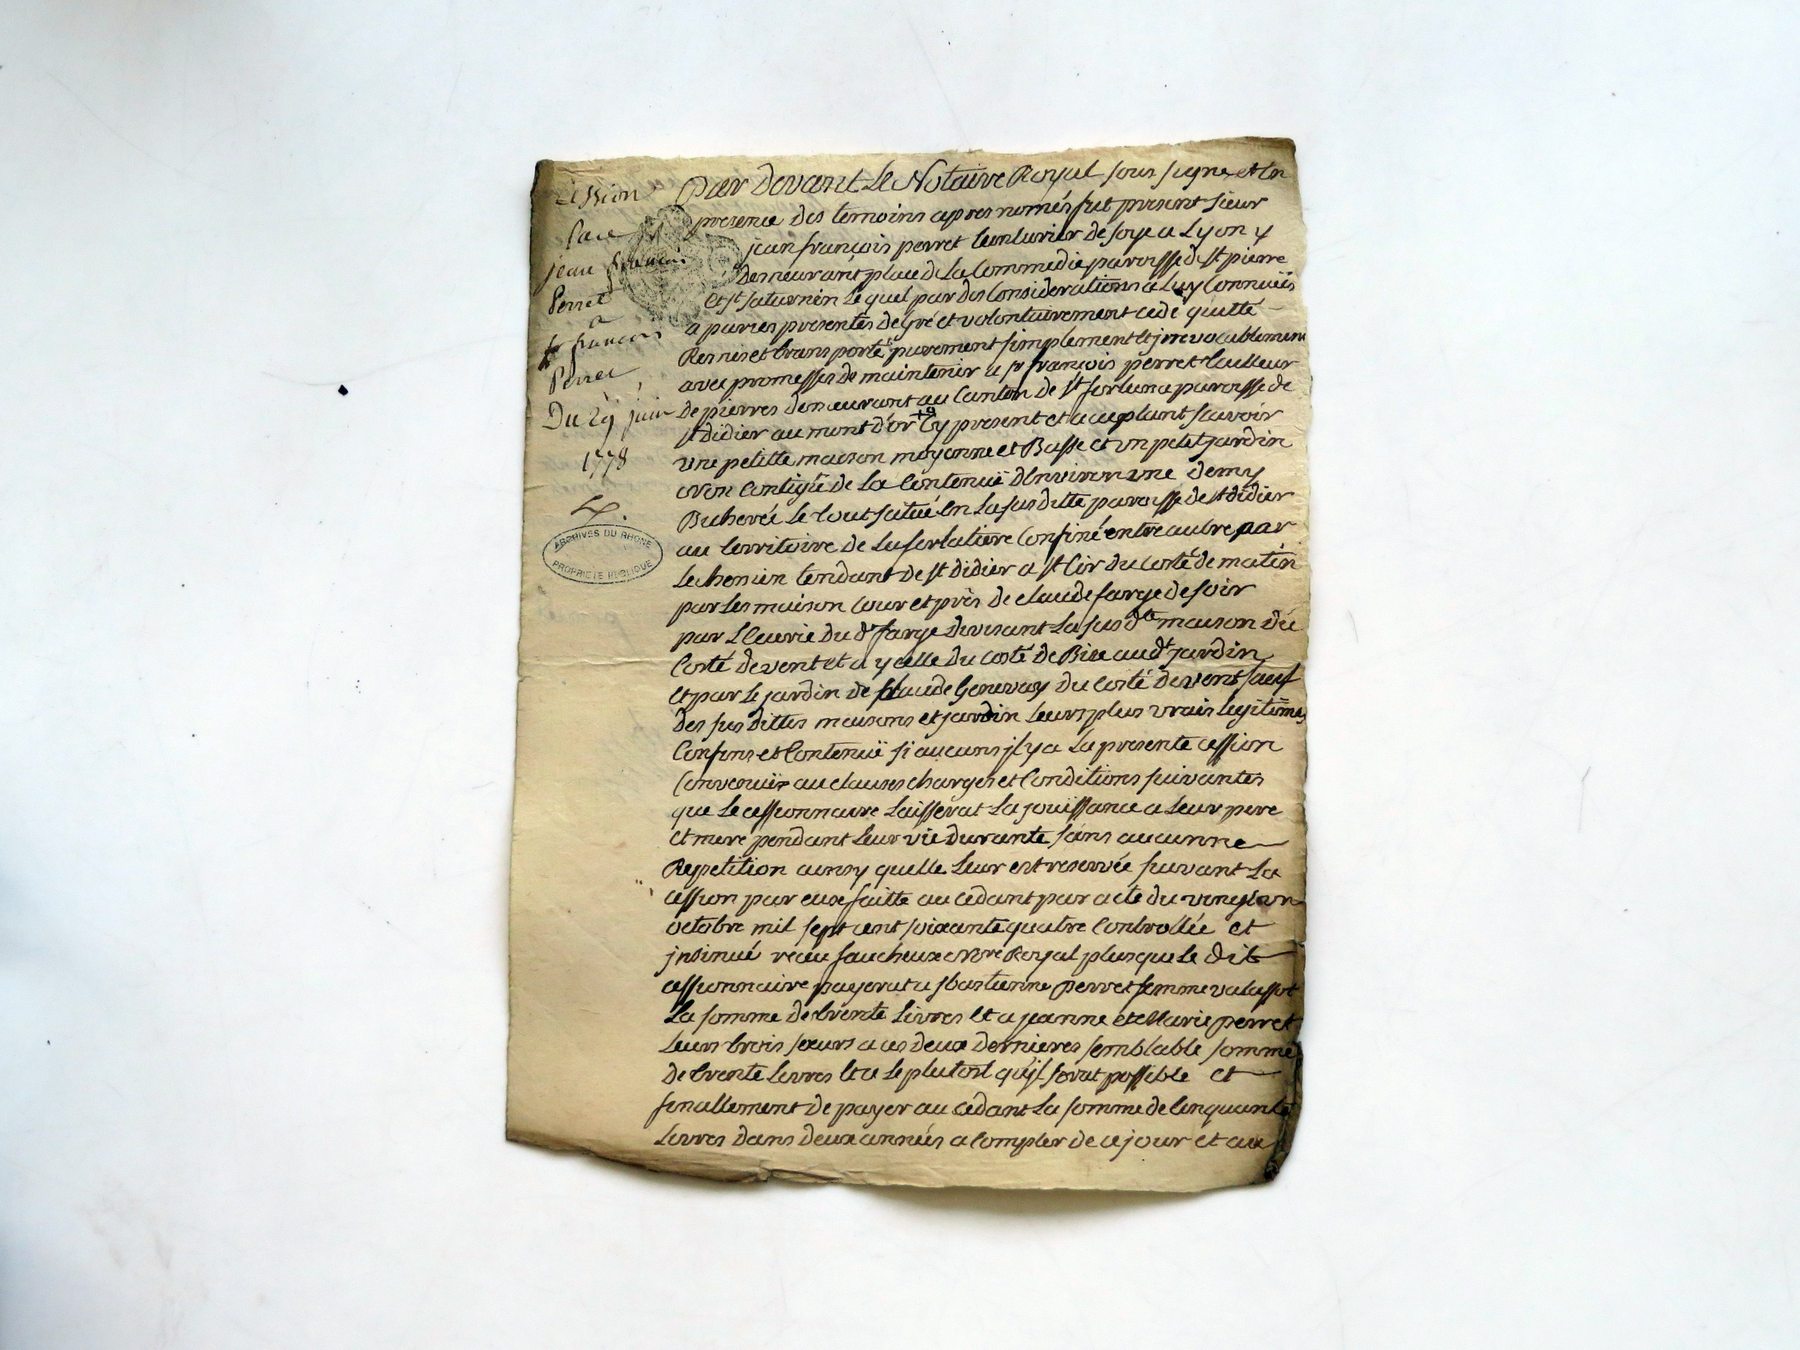 Cession
par
jean françois
Perret
a
sr françois
Perret
Du 29 juin
1778
ARCHIVES DU RHONE
PROPRIETE PUBLIQUE
Par devant Le Notaire Royal sous signé et En
presence des temoins apres només fut present sieur
jean françois perret teinturier de soye a Lyon y
Demeurant place de La Commedie paroisse de st pierre
et st saturnin Lequel par des Considerations a Luy Connuës
a par ses presentes de gré et volontairement cedé quitté
Remis et transporté purement simplement et jrrevocablement
avec promesses de maintenir a sr françois perret tailleur
de pierres demeurant au Canton de st fortuna paroisse de
st didier au mont d'or Cy present et acceptant scavoir
une petitte maison moyenne et Basse et un petit jardin
non Contigue de la Contenuë d'Environ une demy
Bicherée Le tout situé En La sus ditte paroisse de st didier
au territoire de La ferlatiere Confiné entre autre par
Le chemin tendant de st didier a st Cir du costé de matin
par Les maison Cour et près de claude farge de soir
par L'Ecurie du dt farge divisant La sus dte maison du
Costé de vent et a ycelle du costé de Bize au dt jardin
et par Le jardin de claude Genevay du Costé de vent sauf
des sus dittes maisons et jardin Leurs plus vrais Legitimes
Confins et Contenuë si aucuns jl y a La presente cession
Convenuë au clauses charges et Conditions suivantes
que Le cessionnaire Laisserat La jouïssance a Leur pere
et mere pendant Leur vie durante sans aucunne
Repetition ainsy quelle Leur est reservée suivant La
cession par eux faitte au cedant par acte du vingt un
octobre mil sept cent soixante quatre Controllée et
jnsinué receu faucheux Nore Royal plus que Le dit
cessionnaire payerat a sbastienne perret femme valassot
La somme de trente Livres et a jeanne et Marie perret
Leurs trois sœurs a ces deux dernieres semblable somme
de trente Livres et ce Le plutost qu'jl serat possible et
finallement de payer au cedant La somme de Cinquante
Livres dans deux années a Compter de ce jour et aux